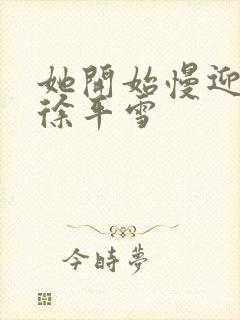 她開始慢迎
徐平雪
今時夢